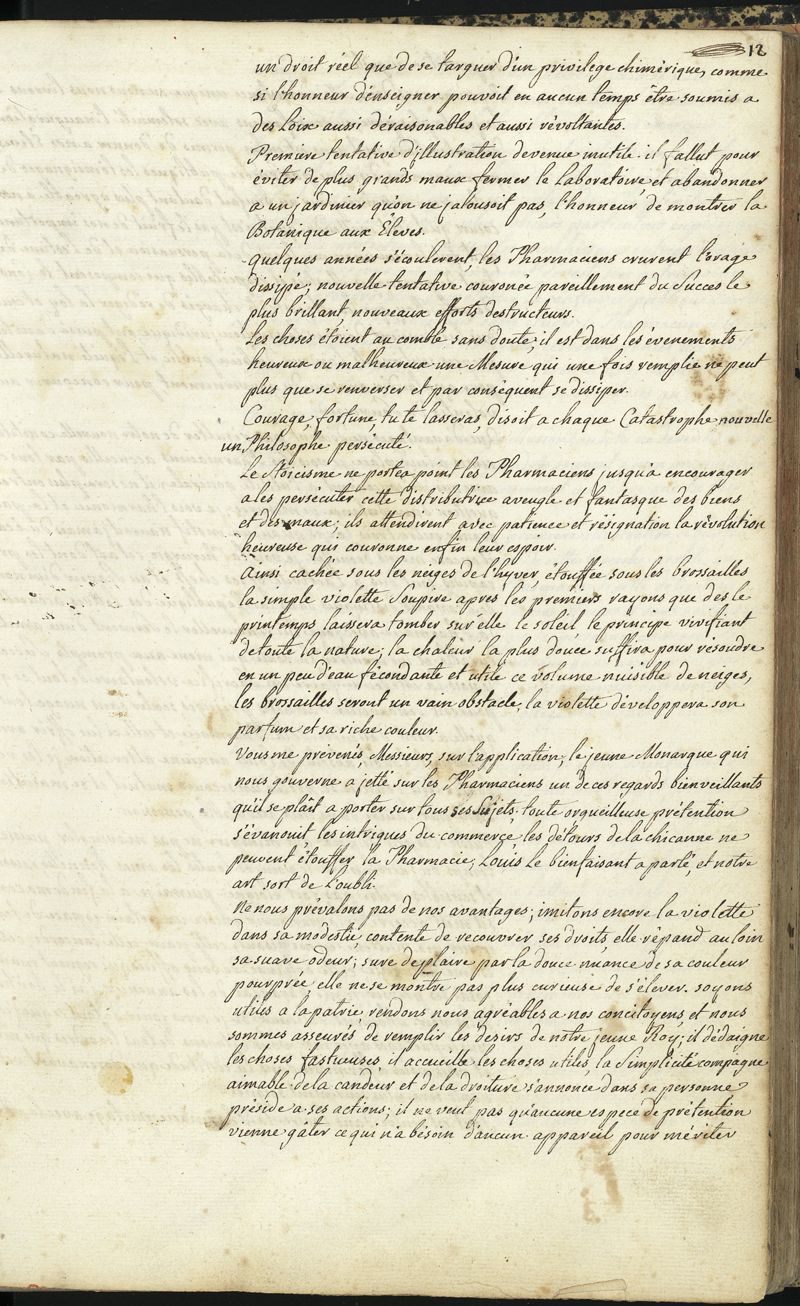 12
un droit réel que de se targuer d'un privilege chimérique, comme
si l'honneur d'enseigner pouvoit en aucun temps être soumis a
des Loix aussi déraisonables et aussi révoltantes.
Premiere tentative d'illustration devenue inutile. il fallut pour
éviter de plus grands maux fermer le Laboratoire, et abandonner
a un jardinier qu'on ne jalousoit pas, l'honneur de montrer la
Botanique aux Éleves.
Quelques années s'écoulerent, les Pharmaciens crurent l'orage
dissipé; nouvelle tentative couronée pareillement du Succes le
plus brillant, nouveaux efforts destructeurs.
Les choses étoient au comble sans doute; il est dans les évenements
heureux ou malheureux une Mesure qui une fois remplie ne peut
plus que se renverser et par conséquent se dissiper.
Courage, fortune, tu te lasseras, disoit a chaque Catastrophe nouvelle
un Philosophe persécuté.
Le Stoïcisme ne porta point les Pharmaciens jusqu'a encourager
a les persécuter cette distributrice aveugle et fantasque des biens
et des maux; ils attendirent avec patience et résignation la révolution
heureuse qui couronne enfin leur espoir.
Ainsi cachée sous les neiges de l'hyver, étouffée sous les brossailles
la simple violette Soupire apres les premiers rayons que des le
printemps laissera tomber sur elle le soleil le principe vivifiant
de toute la nature; la chaleur la plus douce suffira pour résoudre
en un peu d'eau fécondante et utile ce volume nuisible de neiges,
les brossailles seront un vain obstacle, la violette développera son
parfum et sa riche couleur.
Vous me prévenés, Messieurs, sur l'application; le jeune Monarque qui
nous gouverne a jetté sur les Pharmaciens un de ces regards bienveillants
qu'il se plaît a porter sur tous ses Sujets. toute orgueilleuse prétention
s'évanouit, les intrigues du commerce, les détours de la chicanne ne
peuvent étouffer la Pharmacie; Louis Le bienfaisant a parlé, et notre
art sort de l'oubli.
Ne nous prévalons pas de nos avantages; imitons encore la violette
dans sa modestie, contente de recouvrer ses droits elle répand au loin
sa suave odeur; sure de plaire par la douce nuance de sa couleur
pourprée, elle ne se montre pas plus curieuse de s'élever. soyons
utiles a la patrie, rendons nous agréables a nos concitoyens et nous
sommes asseurés de remplir les desirs de notre jeune Roy; il dédaigne
les choses fastueuses, il accueille les choses utiles, la Simplicité compagne
aimable de la candeur et de la droiture s'annonce dans sa personne
préside a ses actions; il ne veut pas qu'aucune espece de prétention
vienne gâter ce qui n'a bésoin d'aucun appareil pour mériter